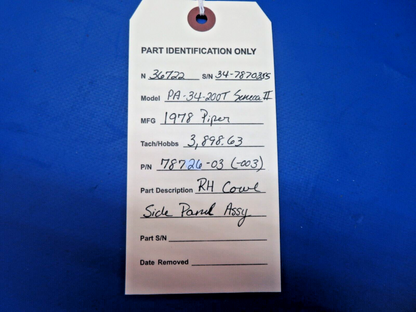 PART IDENTIFICATION ONLY
N 36722 S/N 34-7870355
Model PA-34-200T Seneca II
MFG 1978 Piper
Tach/Hobbs 3,898.63
P/N 78726-03 (-003)
Part Description RH Cowl
Side Panel Assy
Part S/N
Date Removed